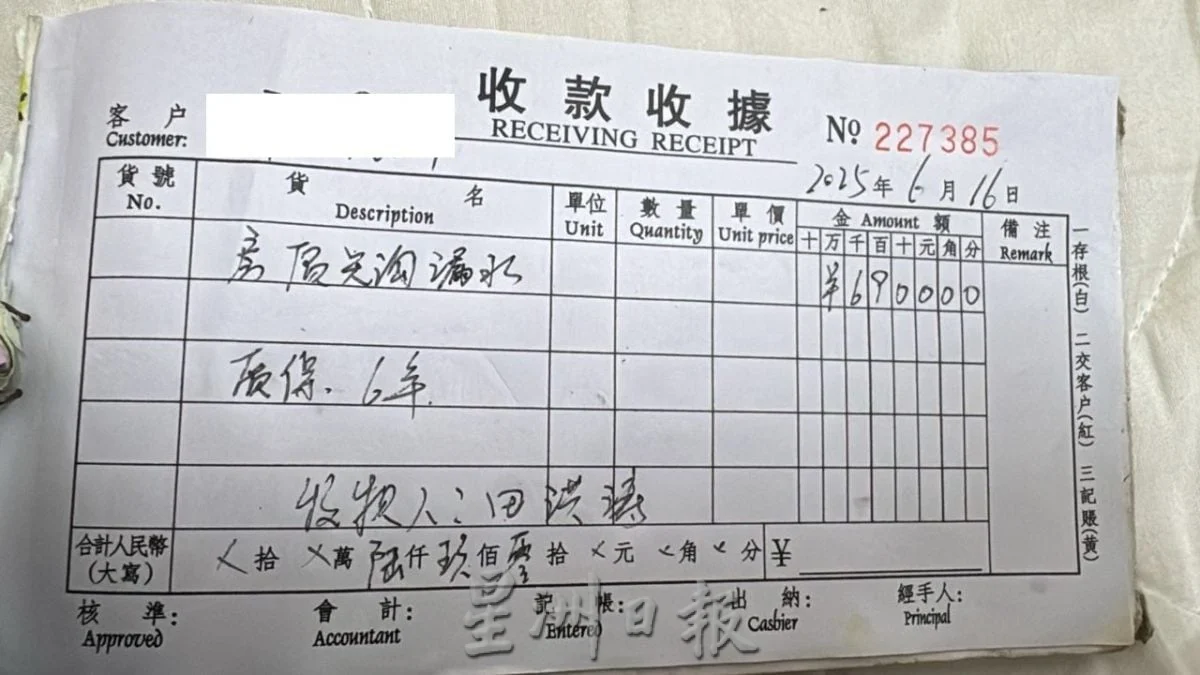 收款收據
RECEIVING RECEIPT
客户
Customer:
№ 227385
2025年6月16日
貨號 貨名 單位 數量 單價 金 Amount 额 備注
No. Description Unit Quantity Unit price 十万千百十元角分 Remark
漏水 ¥690000
质保. 6年.
收款人:田洪涛
合計人民幣
(大寫)
×拾×萬陆仟玖佰零拾×元×角×分 ¥
核準: 會計: 記帳: 出納: 經手人:
Approved Accountant Entered Cashier Principal
一存根(白) 二交客户(紅) 三記賬(黄)
星洲日報